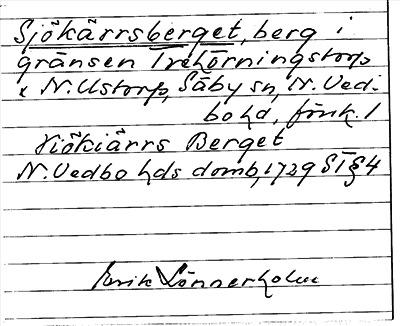 Sjökärrsberget, berg i
gränsen Trehörningstorp
x N. Ustorp, Säby sn, N. Ved-
bo hd, förk. 1
Siökiärrs Berget
N. Vedbo hds domb, 1729 ST § 4
Erik Lönnerholm